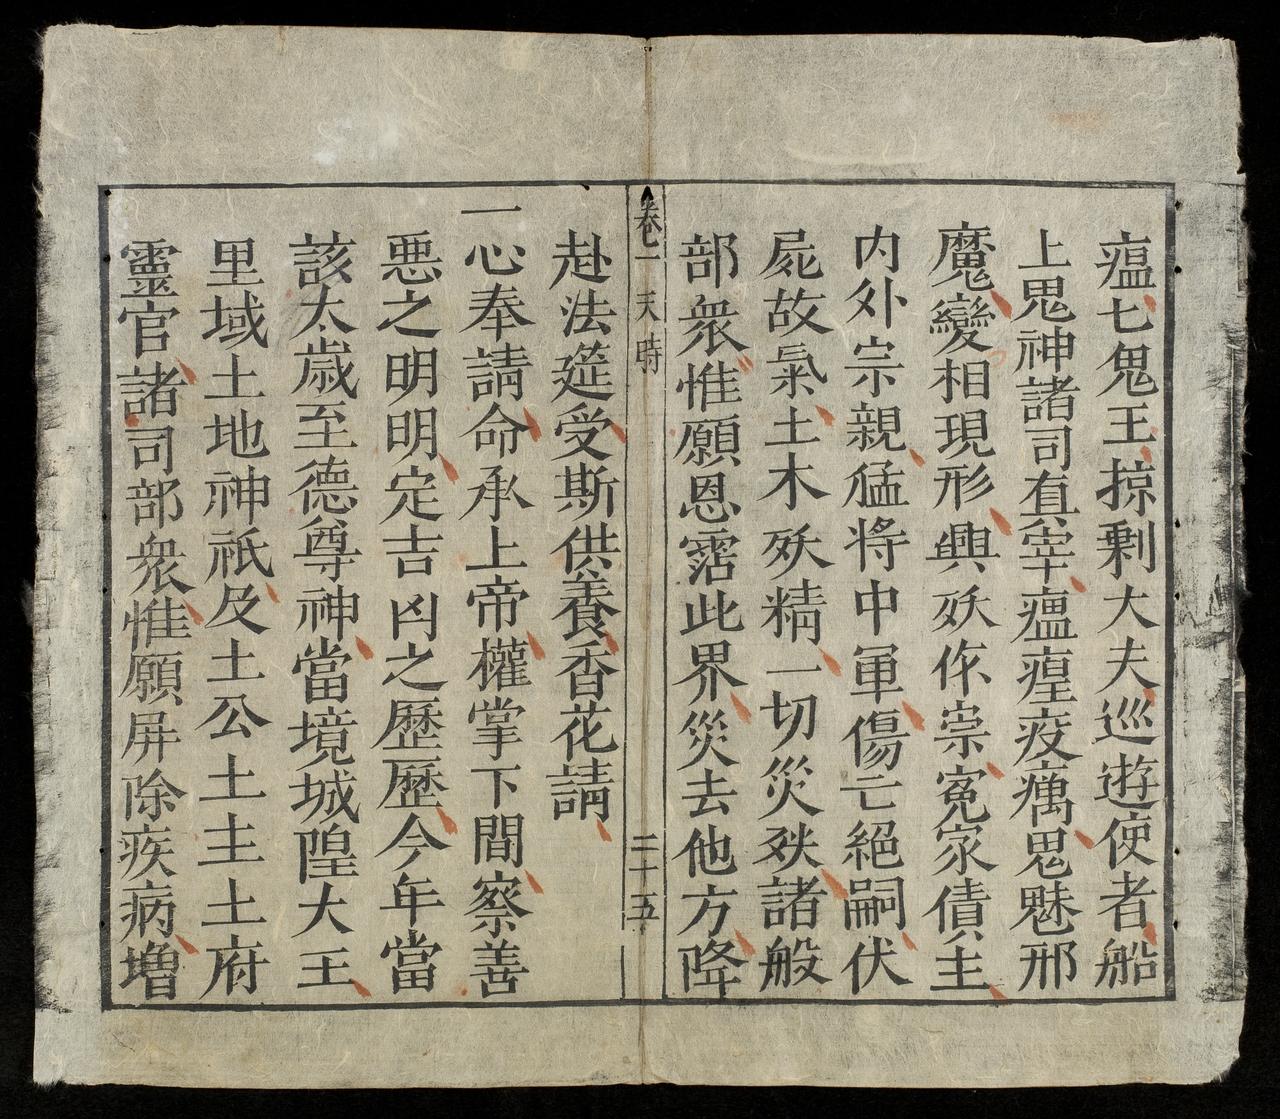 瘟七鬼王掠剩大夫巡遊使者船
上鬼神諸司直宰瘟瘽疫癘鬼魅邪
魔變相現形興妖作宗冤家債主
内外宗親猛将中軍傷亡絕嗣伏
屍故氣土木妖精一切災殃諸般
部衆惟願恩霑此界災去他方降
卷一 天時 二十五
赴法筵受斯供養香花請
一心奉請命承上帝權掌下間察善
悪之明明定吉凶之歷歷今年當
該太歲至德尊神當境城隍大王
里域土地神祇及土公土主土府
靈官諸司部衆惟願屏除疾病增